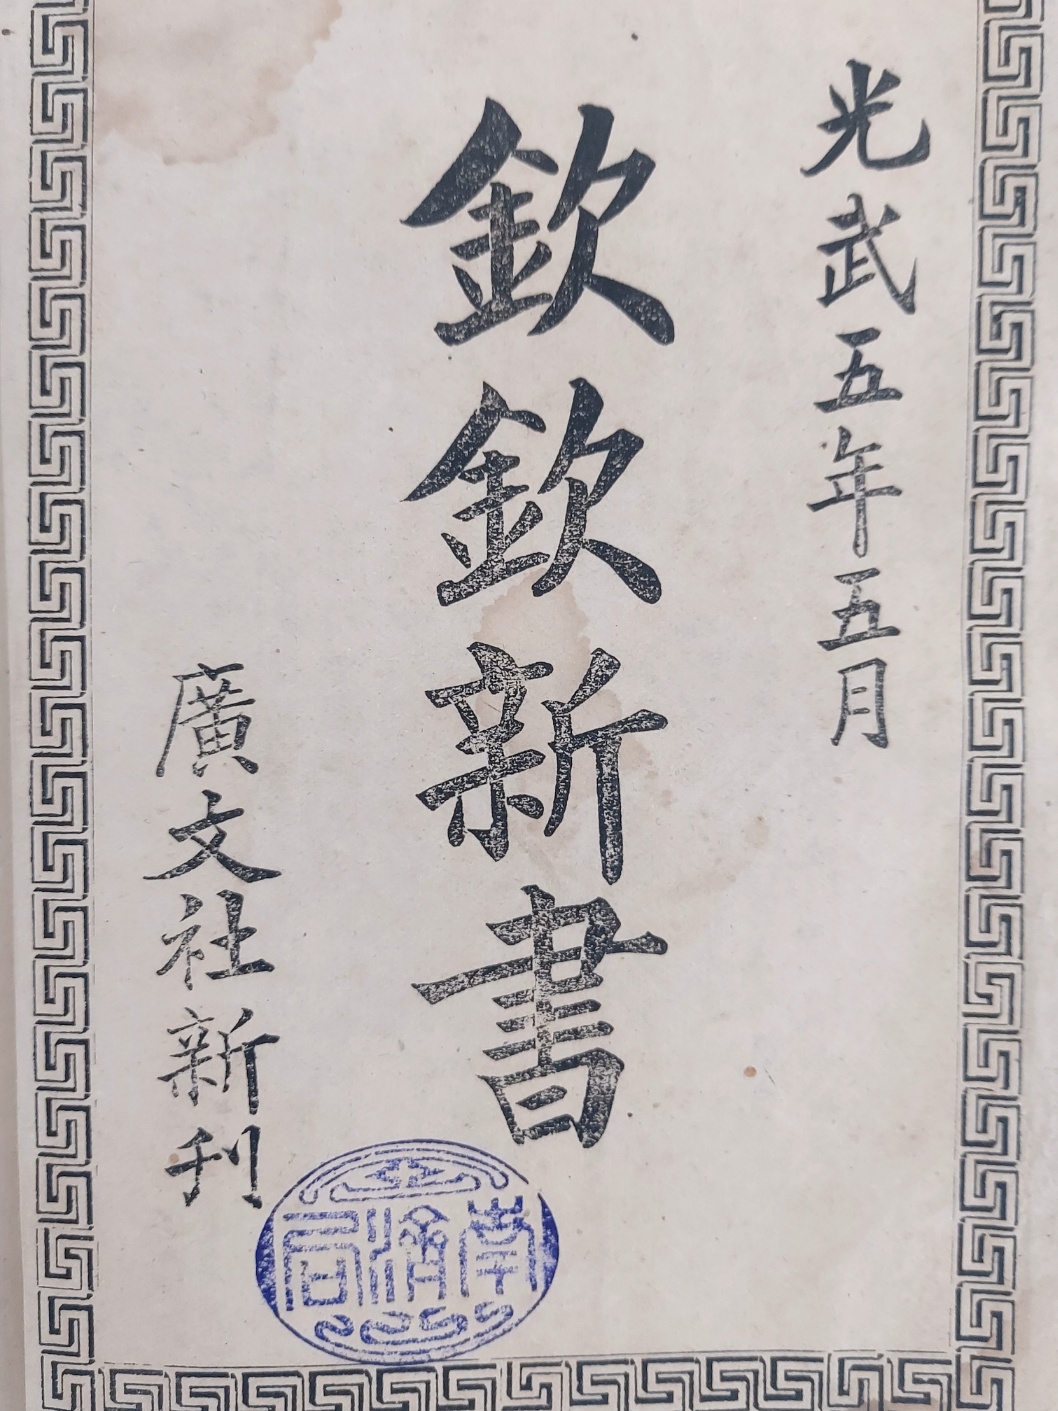 光武五年五月
欽欽新書
廣文社新刊